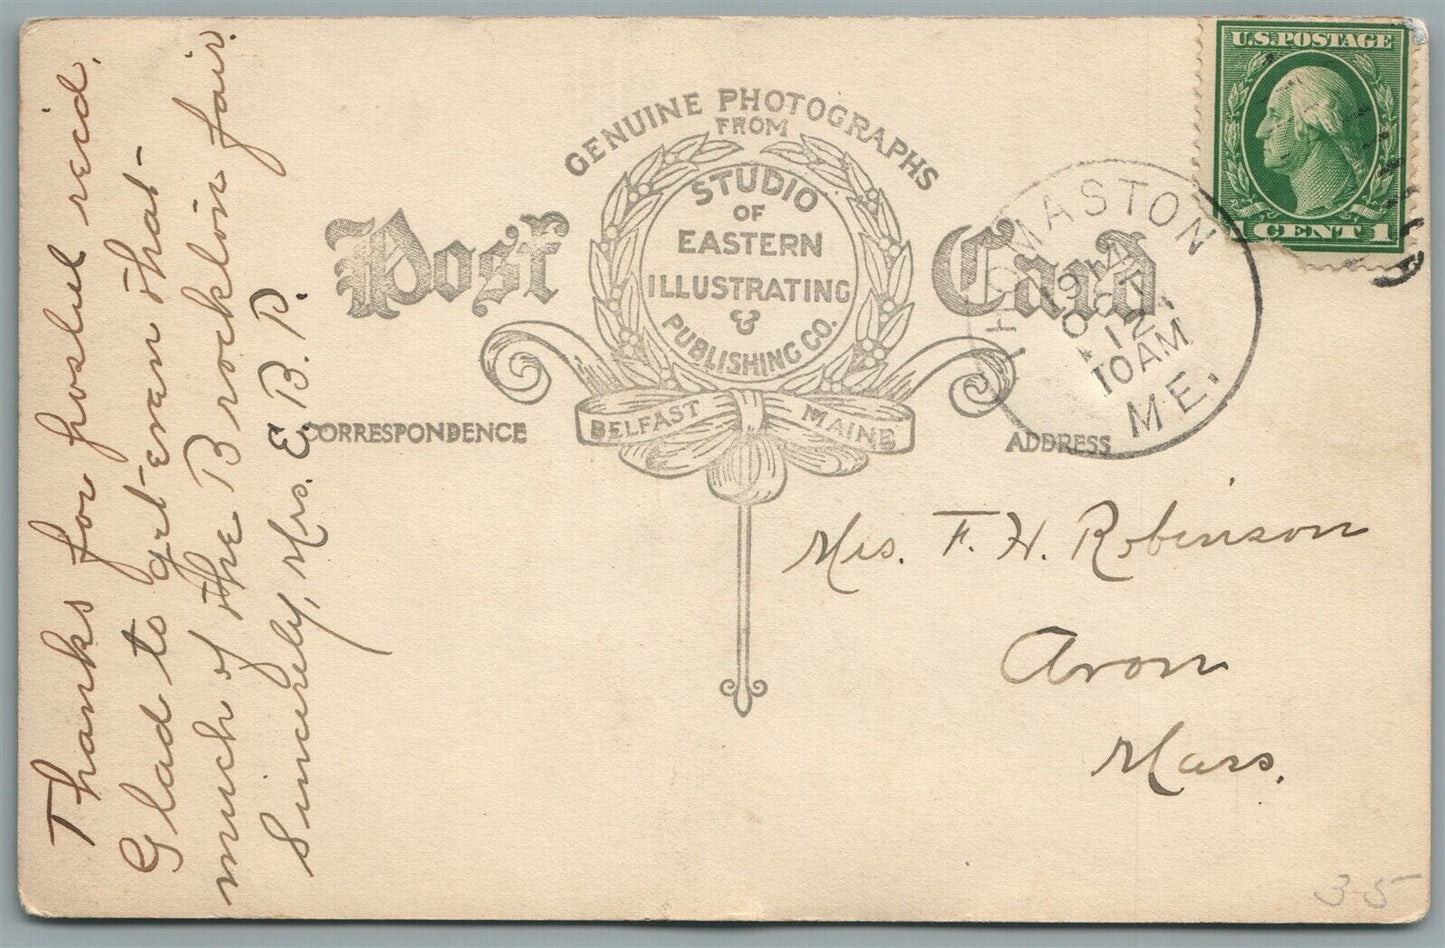 Thanks for postul rec'd.
Glad to get even that
much of the Brockton fair.
Sincerely, Mrs. E. B. P.
GENUINE PHOTOGRAPHS
FROM
STUDIO
OF
EASTERN
ILLUSTRATING
&
PUBLISHING CO.
BELFAST MAINE
Post Card
CORRESPONDENCE
ADDRESS
U.S. POSTAGE
CENT 1
THOMASTON
OCT
12
10 AM
ME.
Mrs. F. H. Robinson
Avon
Mass.
35